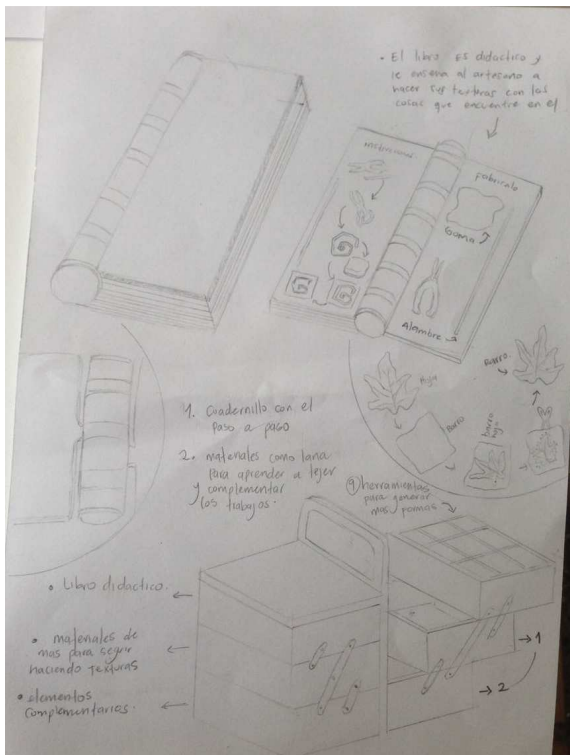 • El libro es didactico y
le enseña al artesano a
hacer sus texturas con las
cosas que encuentre en el
instrucciones
Fabricalo
Goma
Alambre
Hoja
Barro
barro
hoja
Barro
1. Cuadernillo con el
paso a paso
2. materiales como lana
para aprender a tejer
y complementar
los trabajos.
herramientas
para generar
mas formas
• Libro didactico.
• materiales de
mas para seguir
haciendo texturas
• elementos
complementarios.
→ 1
→ 2